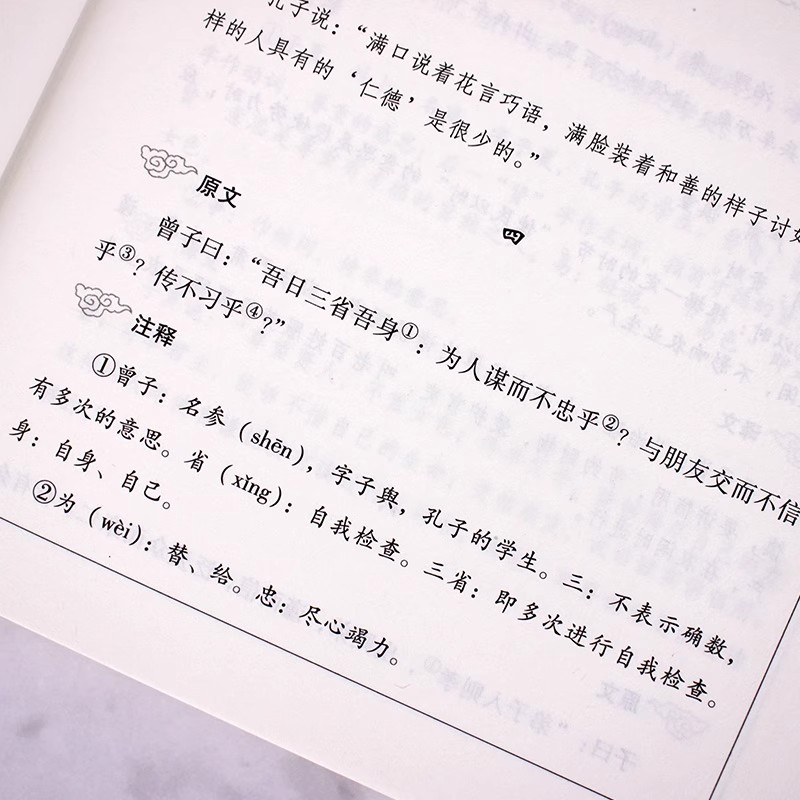 孔子说：“满口说着花言巧语，满脸装着和善的样子讨好
样的人具有的‘仁德’是很少的。”
原文
四
曾子曰：“吾日三省吾身①：为人谋而不忠乎②？与朋友交而不信
乎③？传不习乎④？”
注释
①曾子：名参（shēn），字子舆，孔子的学生。三：不表示确数，
有多次的意思。省（xǐng）：自我检查。三省：即多次进行自我检查。
身：自身、自己。
②为（wèi）：替、给。忠：尽心竭力。